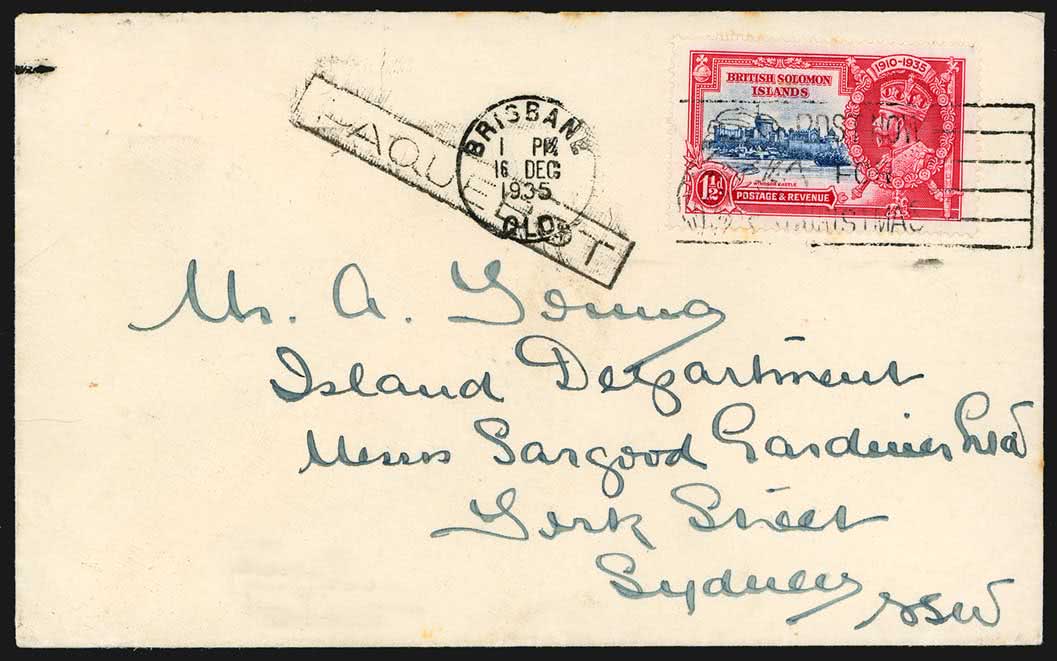 PAQUEBOT
BRISBANE
1 PM
16 DEC
1935
QLD
1910-1935
BRITISH SOLOMON
ISLANDS
WINDSOR CASTLE
1½d
POSTAGE & REVENUE
POST NOW
FOR
CHRISTMAS
Mr. A. Young
Island Department
Messrs Sargood Gardiner Ltd
York Street
Sydney
NSW